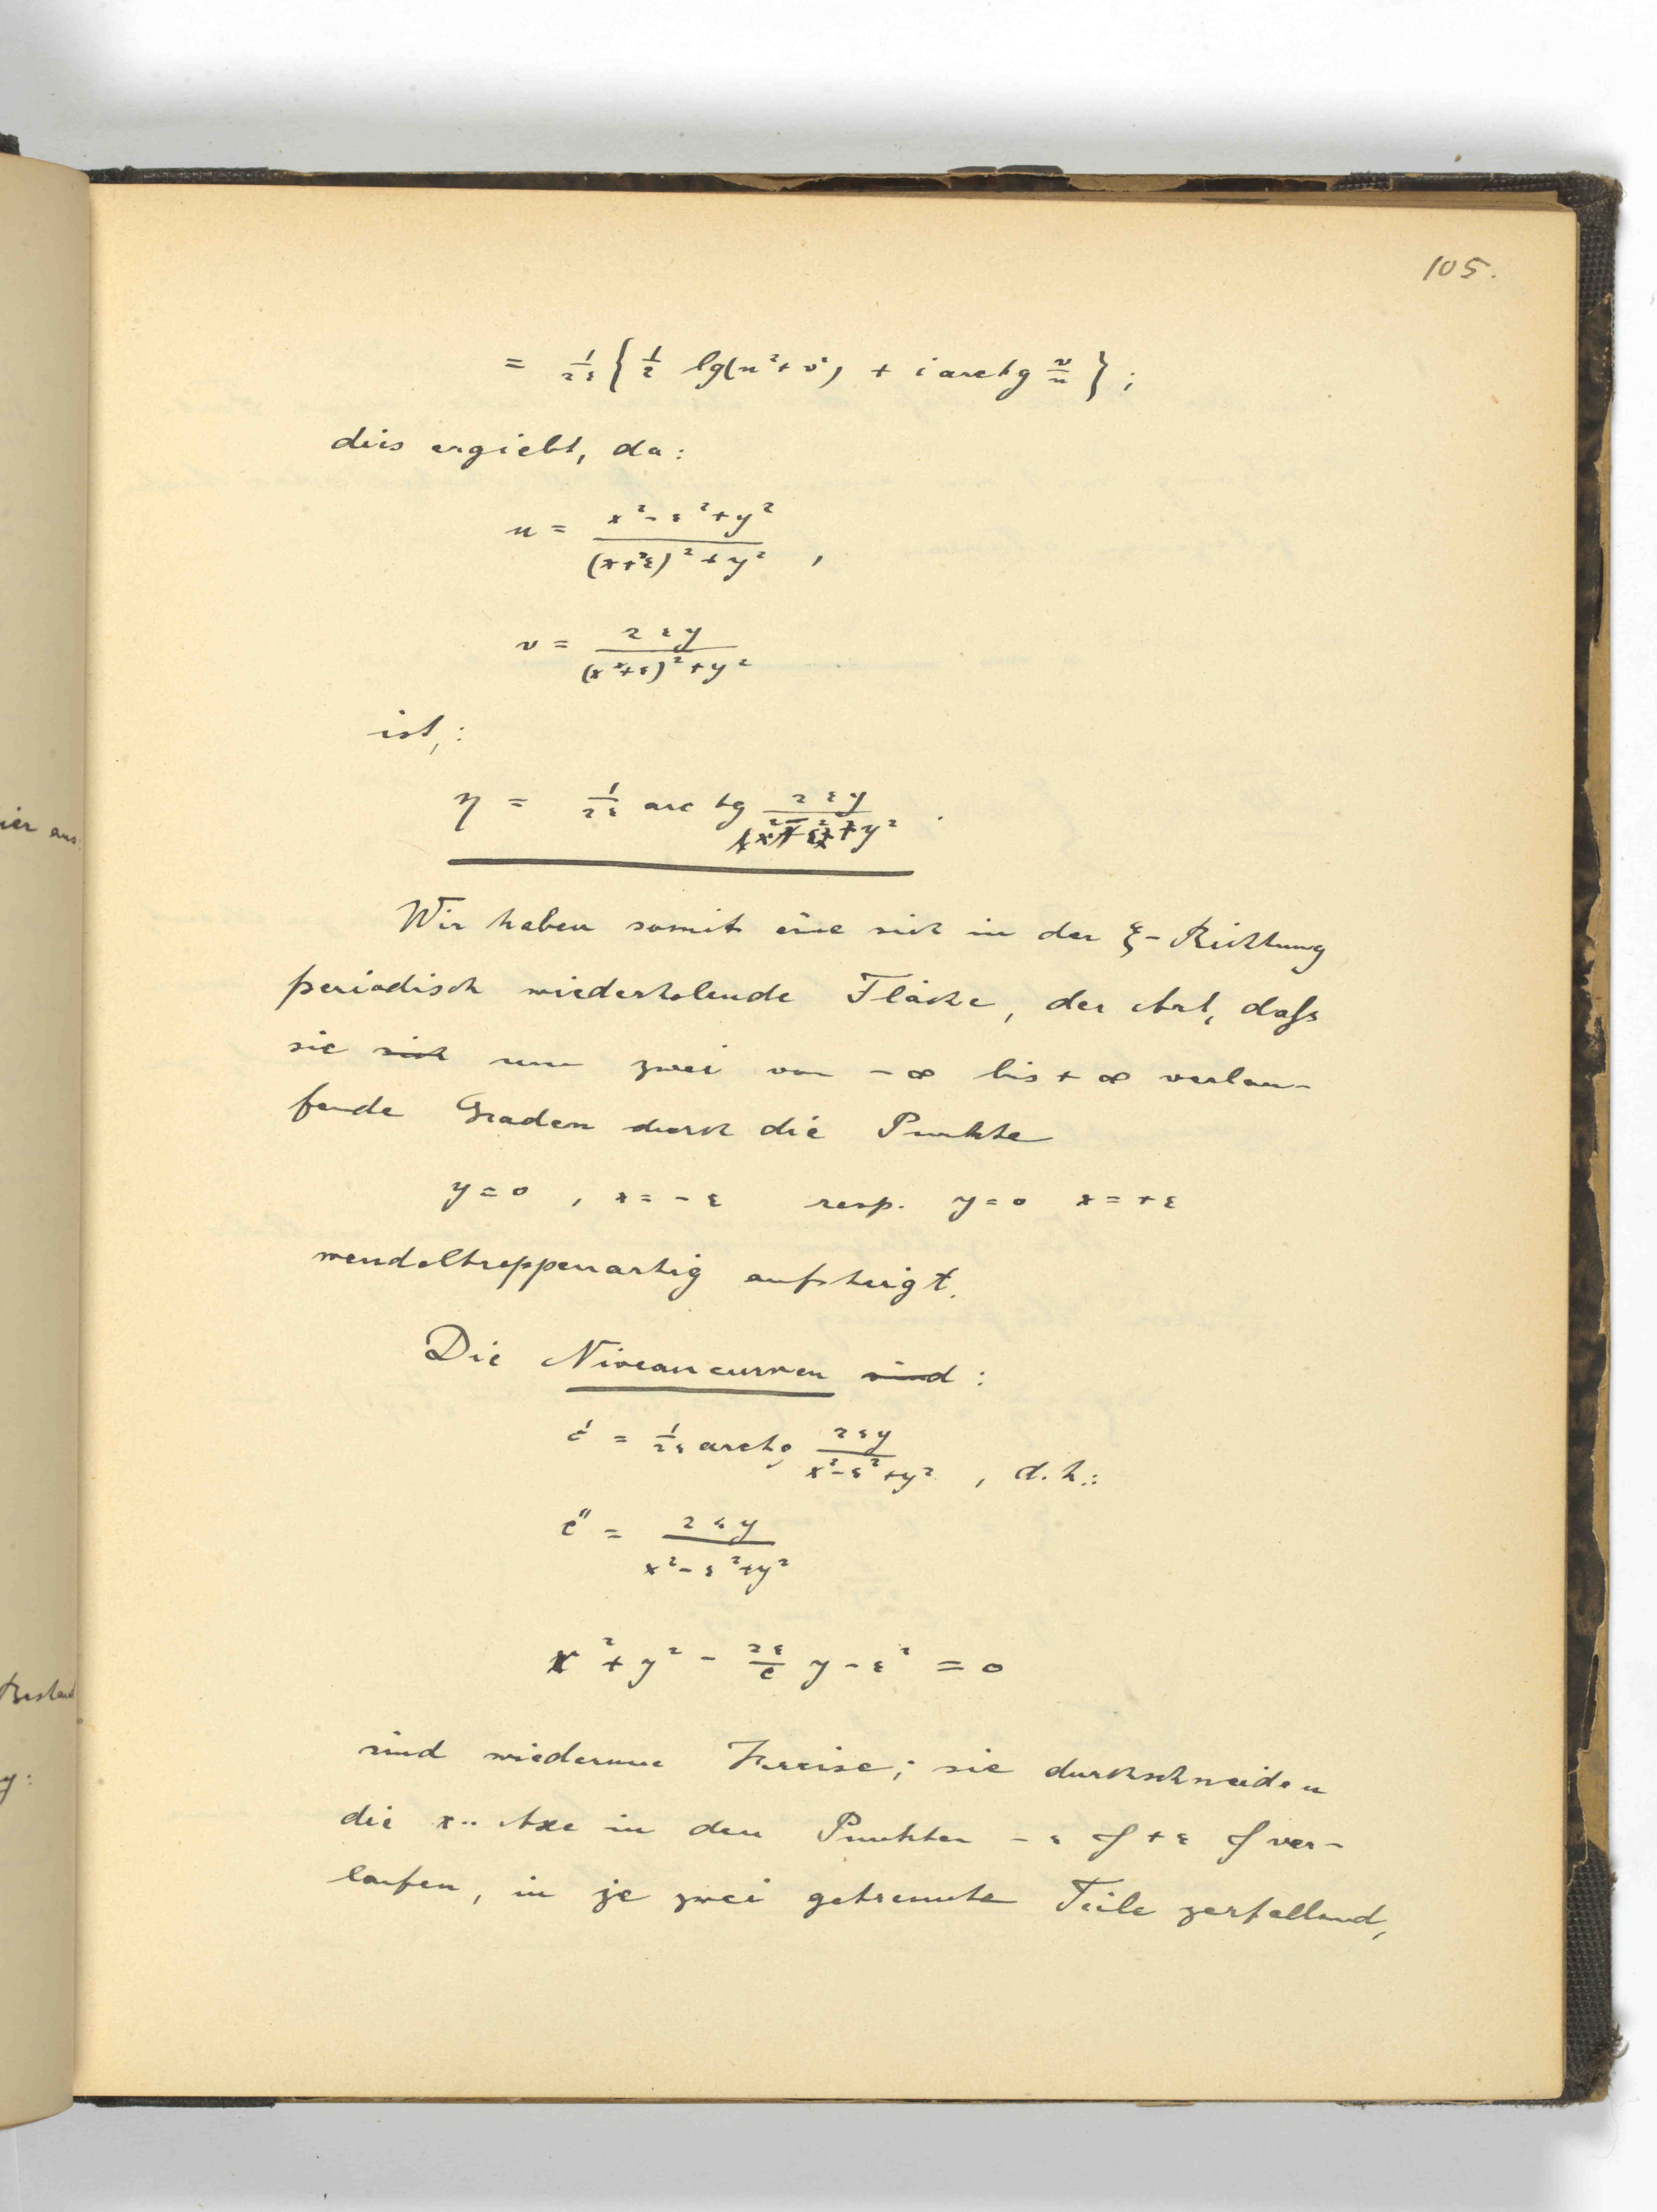 105.
= 1/2ε { 1/2 lg(u²+v²) + i arctg v/u } ;
dies ergiebt, da:
u = (x²-ε²+y²)/((x+ε)²+y²) ,
v = 2εy/((x+ε)²+y²)
ist,:
η = 1/2ε arc tg 2εy/(x²-ε²+y²) .
Wir haben somit eine sich in der ξ-Richtung
periodisch wiederholende Fläche, der Art, daſs
sie sich um zwei von -∞ bis +∞ verlau-
fende Graden durch die Punkte
y=0 , x=-ε resp. y=0 x=+ε
wendeltreppenartig aufsteigt.
Die Niveaucurven sind :
c' = 1/2ε arctg 2εy/(x²-ε²+y²) , d.h.:
c'' = 2εy/(x²-ε²+y²)
x²+y² - 2ε/c y-ε² = 0
sind wiederum Kreise; sie durchschneiden
die x-Axe in den Punkten -ε & +ε & ver-
laufen, in je zwei getrennte Teile zerfallend,
ier aus:
y: